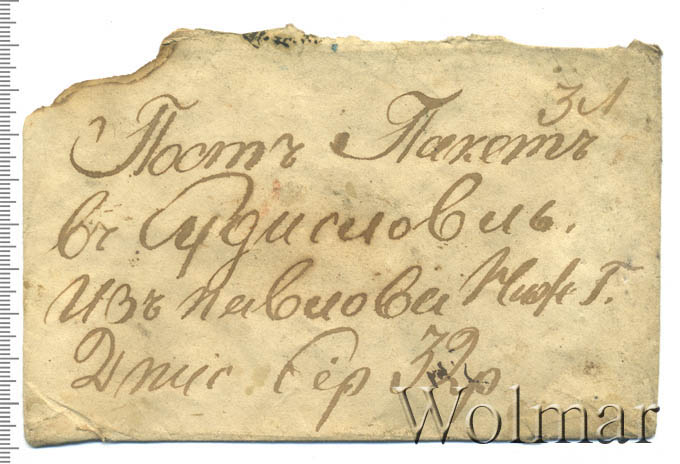 3 л
Постъ Пакетъ
въ Судиславль.
Изъ Павлова Ниж Г.
Сер 32 р
Wolmar